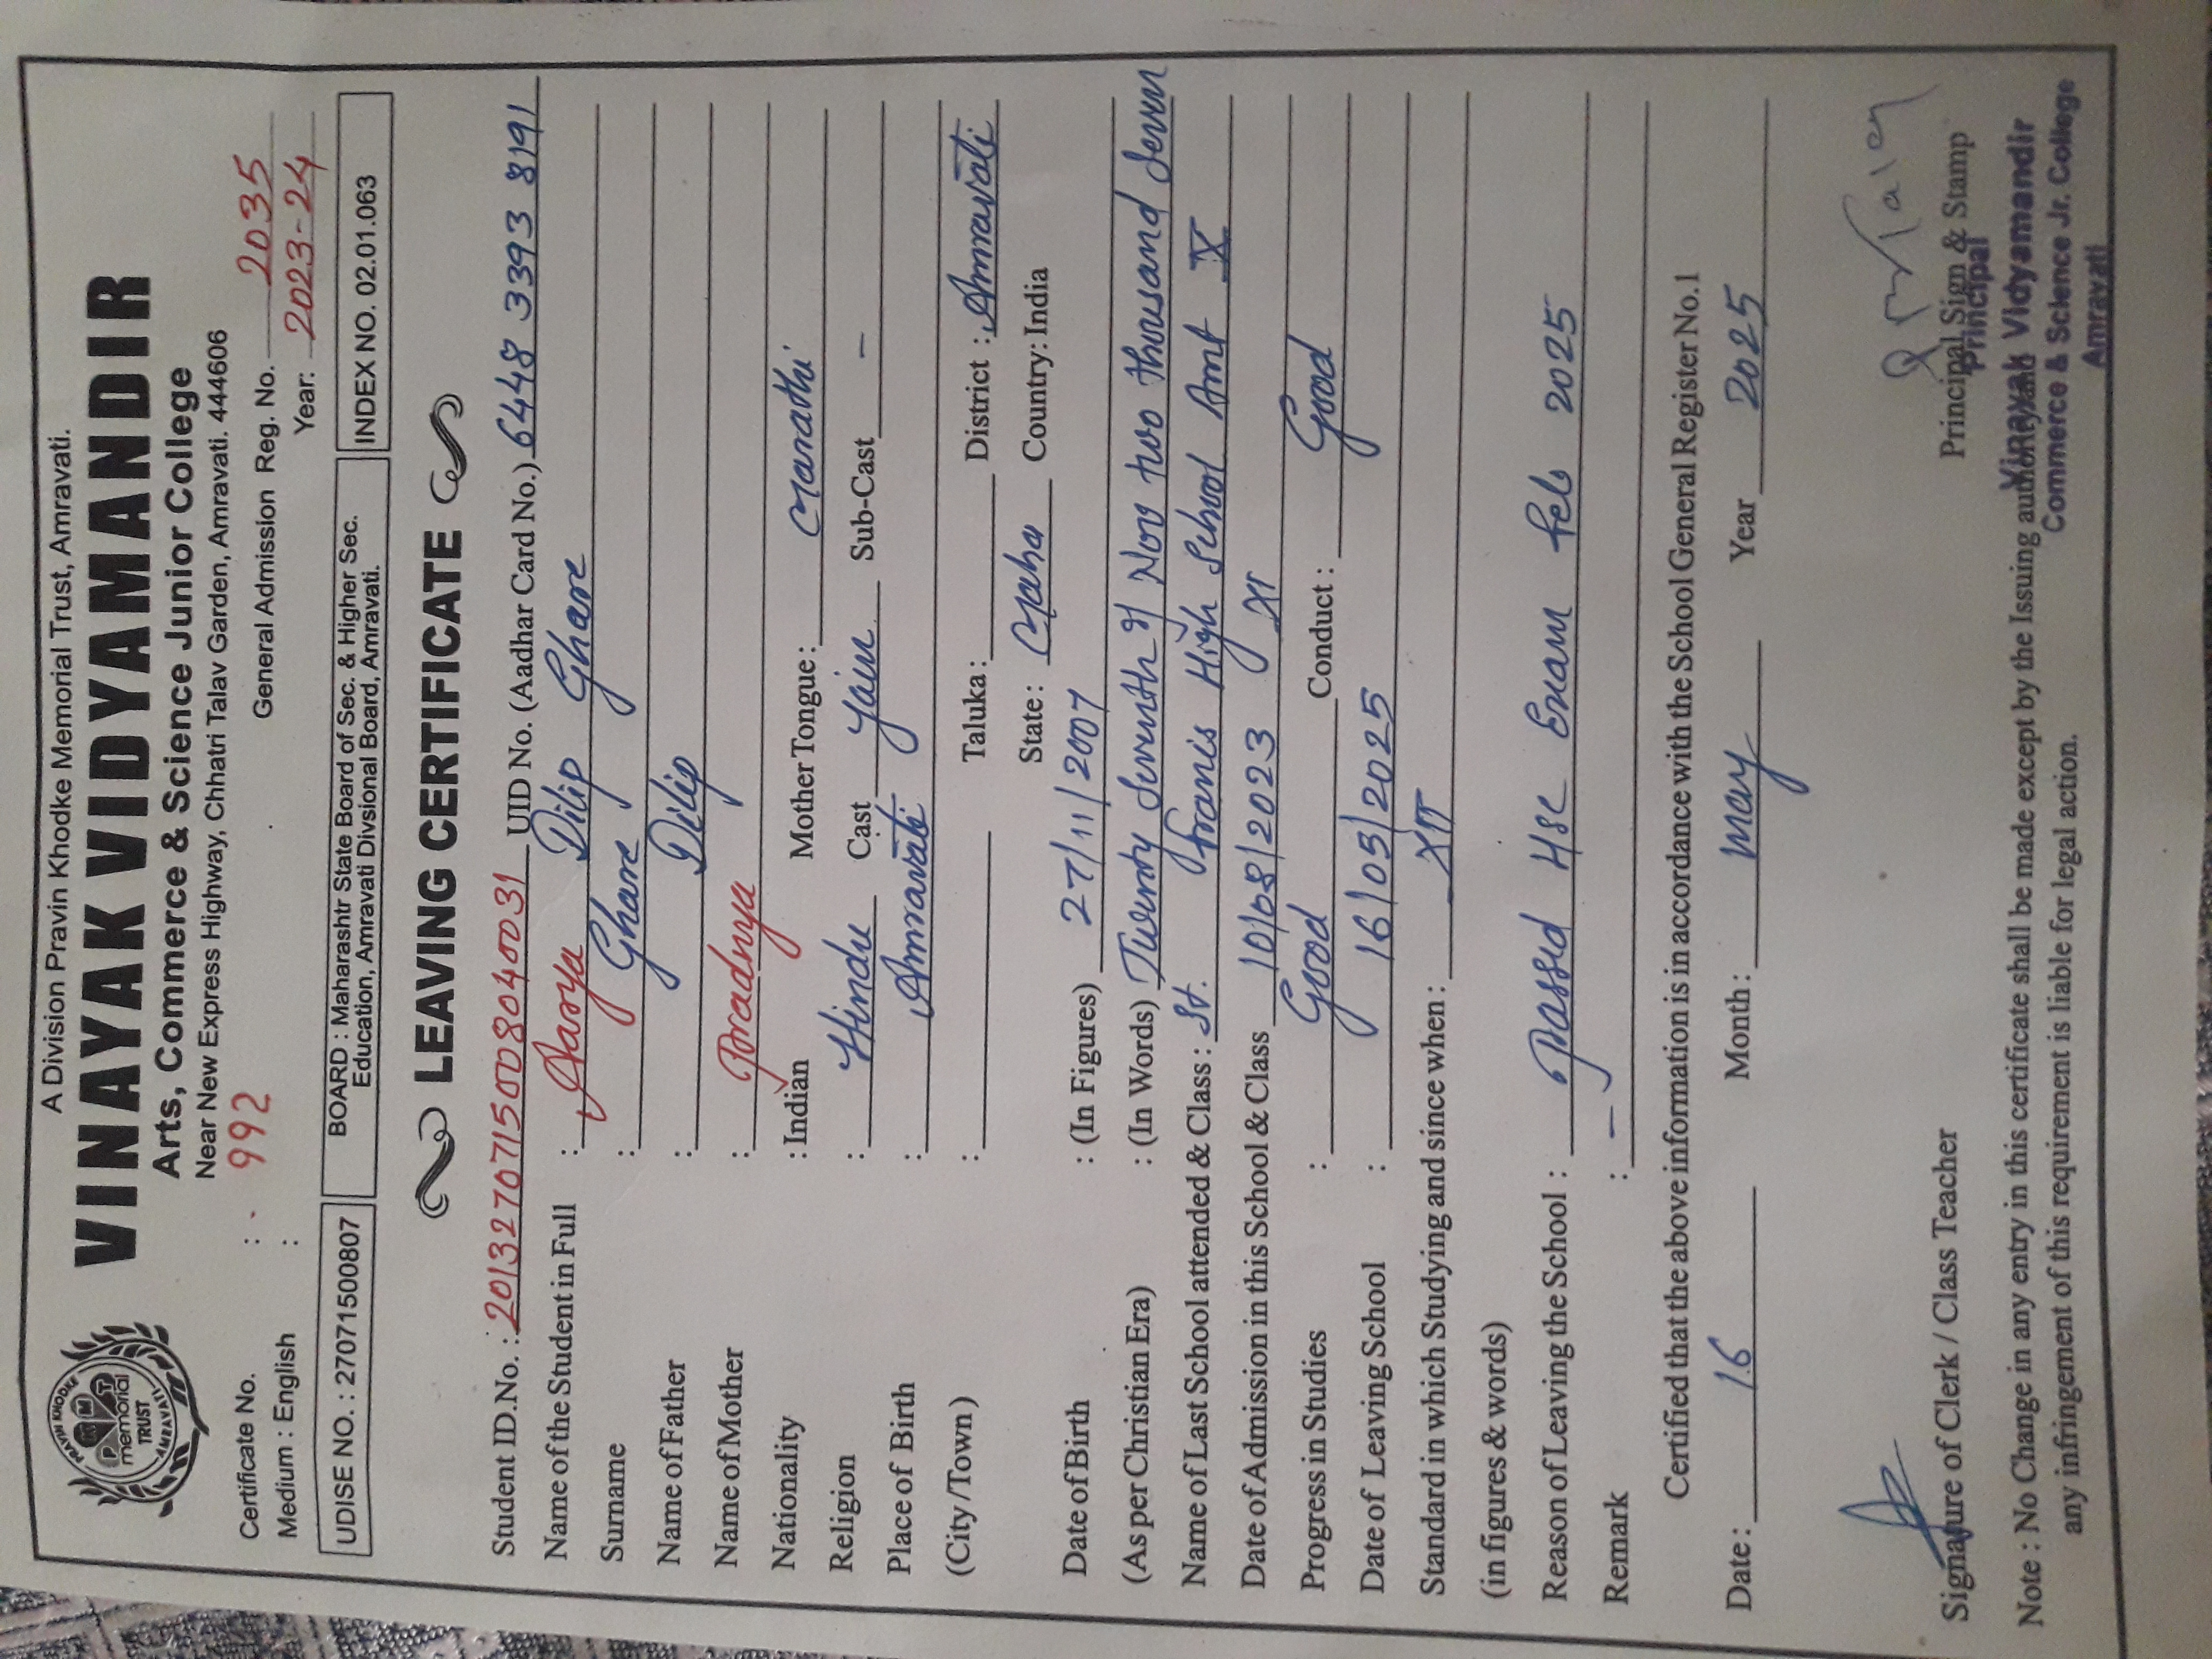 A Division Pravin Khodke Memorial Trust, Amravati.
VINAYAK VIDYAMANDIR
Arts, Commerce & Science Junior College
Near New Express Highway, Chhatri Talav Garden, Amravati. 444606
PRAVIN KHODKE
memorial
TRUST
AMRAVATI
Certificate No. : 992 General Admission Reg. No. 2035
Medium : English : Year: 2023-24
UDISE NO. : 27071500807
BOARD : Maharashtr State Board of Sec. & Higher Sec.
Education, Amravati Divsional Board, Amravati.
INDEX NO. 02.01.063
LEAVING CERTIFICATE
Student ID.No. : 2013270715008040031 UID No. (Aadhar Card No.) 6448 3393 8191
Name of the Student in Full : Aarya Dilip Ghare
Surname : Ghare
Name of Father : Dilip
Name of Mother : Pradnya
Nationality : Indian Mother Tongue: Marathi
Religion : Hindu Cast Jain Sub-Cast –
Place of Birth : Amravati
(City/Town) : Taluka: District : Amravati
State: Maha Country: India
Date of Birth : (In Figures) 27/11/2007
(As per Christian Era) : (In Words) Twenty Seventh of Nov two thousand Seven
Name of Last School attended & Class : St. Francis High School Amt X
Date of Admission in this School & Class 10/08/2023 XI
Progress in Studies : Good Conduct : Good
Date of Leaving School : 16/05/2025
Standard in which Studying and since when : XII
(in figures & words)
Reason of Leaving the School : Passed Hsc Exam Feb 2025
Remark : –
Certified that the above information is in accordance with the School General Register No.1
Date : 16 Month : May Year 2025
Signature of Clerk / Class Teacher Principal Sign & Stamp
Principal
Vinayak Vidyamandir
Commerce & Science Jr. College
Amravati
Note : No Change in any entry in this certificate shall be made except by the Issuing authority and
any infringement of this requirement is liable for legal action.